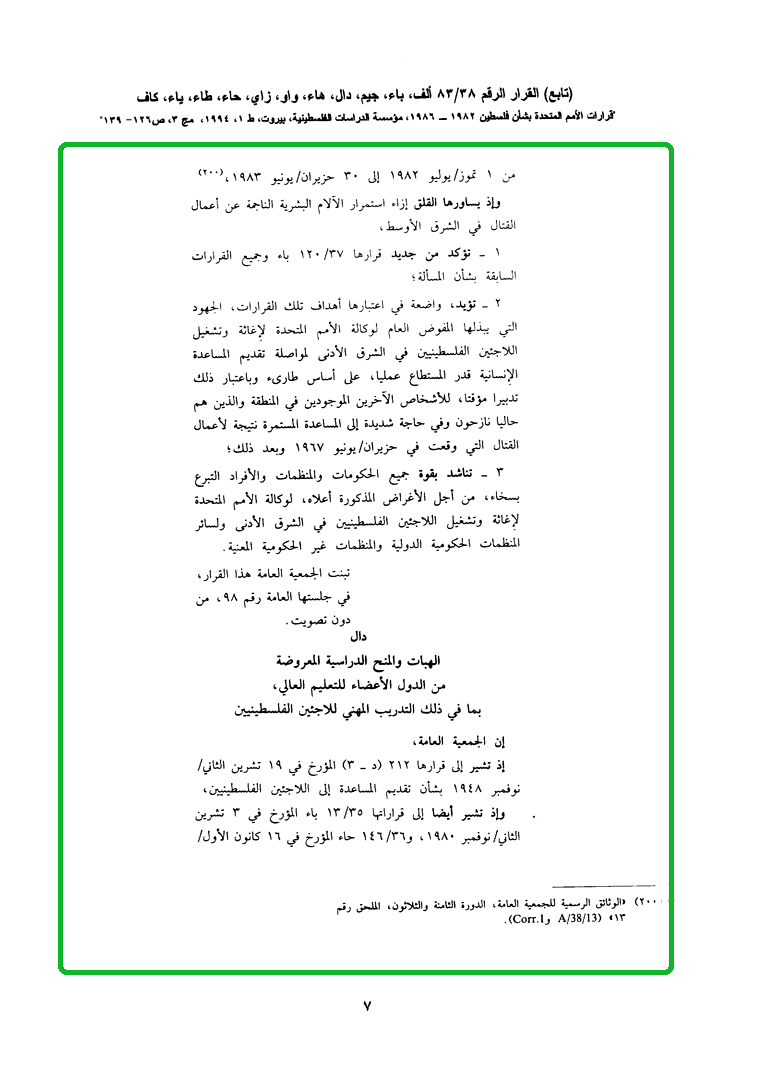 (تابع) القرار الرقم ٨٣/٣٨ ألف، باء، جيم، دال، هاء، واو، زاي، حاء، طاء، ياء، كاف
"قرارات الأمم المتحدة بشأن فلسطين ١٩٨٢ ــ ١٩٨٦، مؤسسة الدراسات الفلسطينية، بيروت، ط ١، ١٩٩٤، مج ٣، ص١٢٦- ١٣٩"
من ١ تموز/يوليو ١٩٨٢ إلى ٣٠ حزيران/يونيو ١٩٨٣،(٢٠٠)
وإذ يساورها القلق إزاء استمرار الآلام البشرية الناجمة عن أعمال
القتال في الشرق الأوسط،
١ ـ تؤكد من جديد قرارها ١٢٠/٣٧ باء وجميع القرارات
السابقة بشأن المسألة؛
٢ ـ تؤيد، واضعة في اعتبارها أهداف تلك القرارات، الجهود
التي يبذلها المفوض العام لوكالة الأمم المتحدة لإغاثة وتشغيل
اللاجئين الفلسطينيين في الشرق الأدنى لمواصلة تقديم المساعدة
الإنسانية قدر المستطاع عمليا، على أساس طارىء وباعتبار ذلك
تدبيرا مؤقتا، للأشخاص الآخرين الموجودين في المنطقة والذين هم
حاليا نازحون وفي حاجة شديدة إلى المساعدة المستمرة نتيجة لأعمال
القتال التي وقعت في حزيران/يونيو ١٩٦٧ وبعد ذلك؛
٣ ـ تناشد بقوة جميع الحكومات والمنظمات والأفراد التبرع
بسخاء، من أجل الأغراض المذكورة أعلاه، لوكالة الأمم المتحدة
لإغاثة وتشغيل اللاجئين الفلسطينيين في الشرق الأدنى ولسائر
المنظمات الحكومية الدولية والمنظمات غير الحكومية المعنية.
تبنت الجمعية العامة هذا القرار،
في جلستها العامة رقم ٩٨، من
دون تصويت.
دال
الهبات والمنح الدراسية المعروضة
من الدول الأعضاء للتعليم العالي،
بما في ذلك التدريب المهني للاجئين الفلسطينيين
إن الجمعية العامة،
إذ تشير إلى قرارها ٢١٢ (د ـ ٣) المؤرخ في ١٩ تشرين الثاني/
نوفمبر ١٩٤٨ بشأن تقديم المساعدة إلى اللاجئين الفلسطينيين،
وإذ تشير أيضا إلى قراراتها ١٣/٣٥ باء المؤرخ في ٣ تشرين
الثاني/نوفمبر ١٩٨٠، و١٤٦/٣٦ حاء المؤرخ في ١٦ كانون الأول/
(٢٠٠) «الوثائق الرسمية للجمعية العامة، الدورة الثامنة والثلاثون، الملحق رقم
١٣» (A/38/13 وCorr.1).
٧